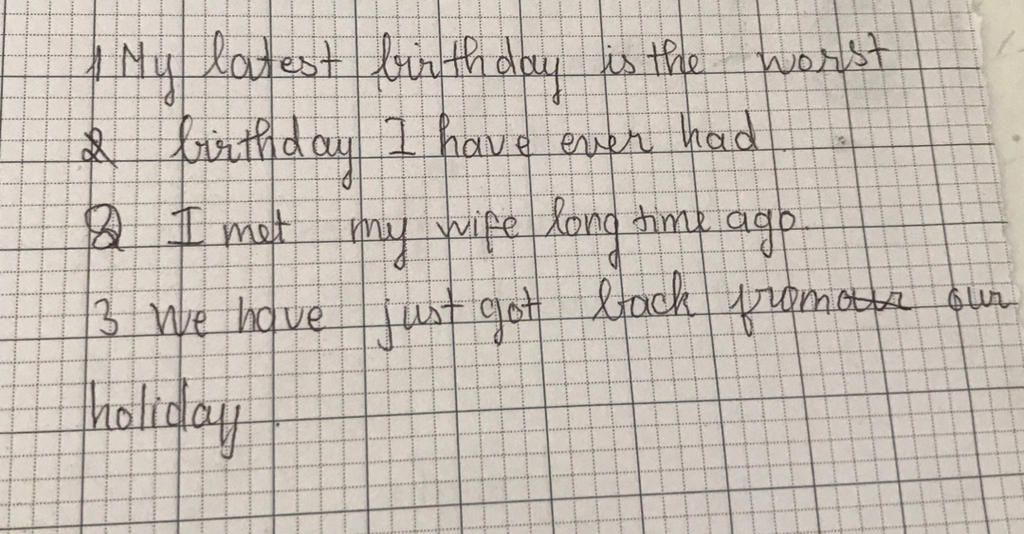 1 My latest birthday is the worst
birthday I have ever had
2 I met my wife long time ago.
3 We have just got back from our
holiday.